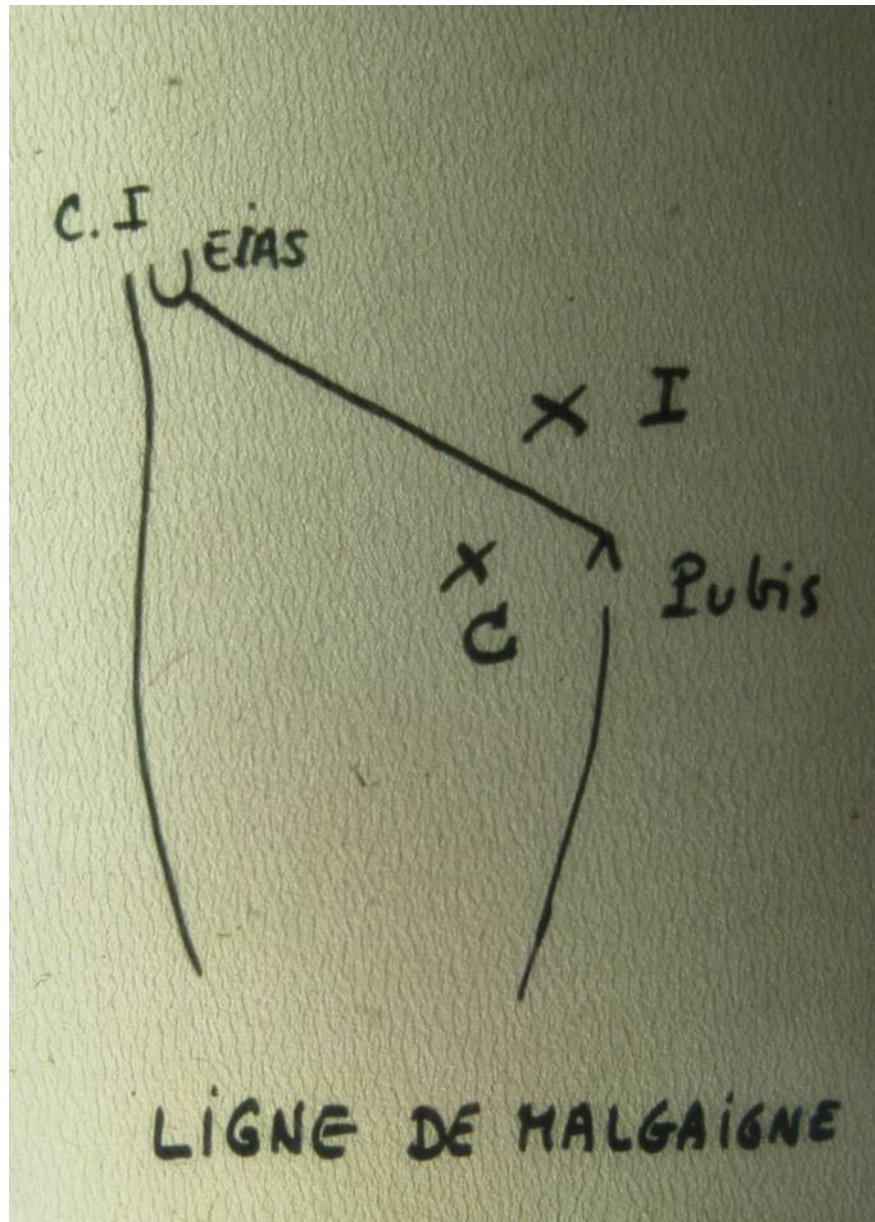 C. I
EIAS
I
Pubis
C
LIGNE DE MALGAIGNE